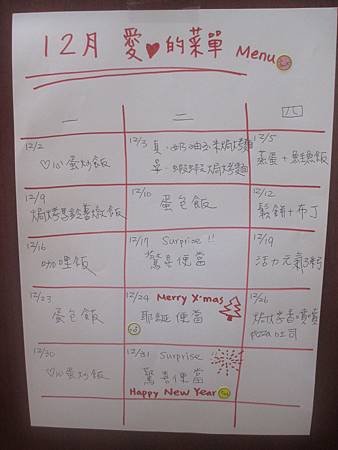 12月 愛♥的菜單 Menu
一 二 四
12/2
♡心蛋炒飯
12/3 真·奶油玉米焗烤麵
蝦蝦焗烤麵
12/5
蒸蛋+魚鬆飯
12/9
焗烤馬鈴薯燉飯
12/10
蛋包飯
12/12
鬆餅+布丁
12/16
咖哩飯
12/17 Surprise!!
驚喜便當
12/19
活力元氣粥
12/23
蛋包飯
12/24 Merry X'mas
耶誕便當
12/26
烘烤香噴噴
pizza吐司
12/30
♡心蛋炒飯
12/31 Surprise
驚喜便當
Happy New Year